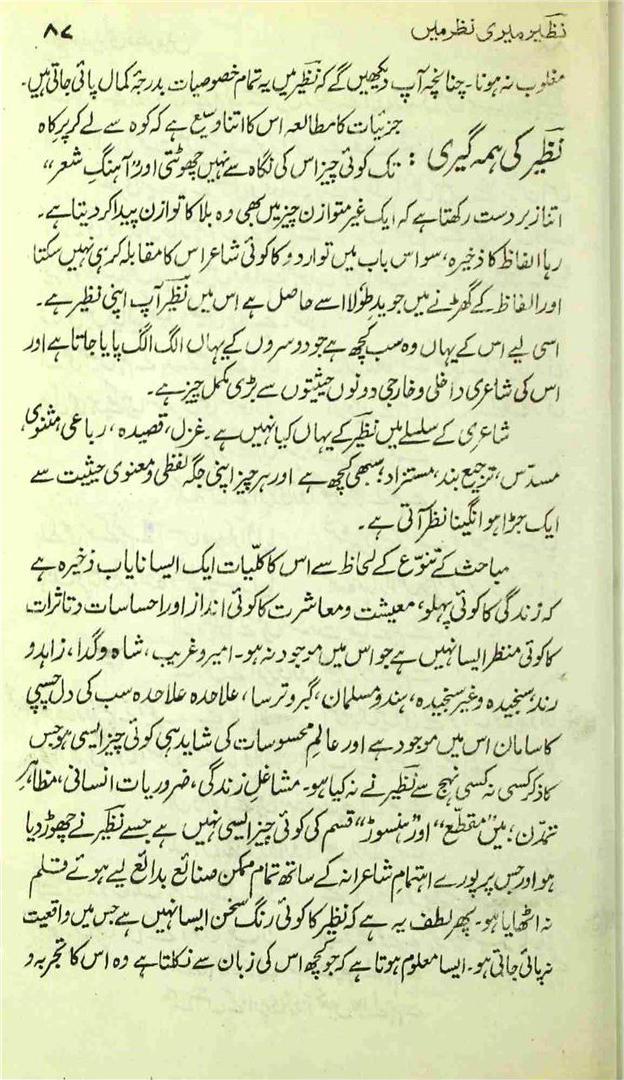 نظیر میری نظر میں ۸۷
مغلوب نہ ہونا۔ چنانچہ آپ دیکھیں گے کہ نظیر میں یہ تمام خصوصیات بدرجۂ کمال پائی جاتی ہیں۔
جزئیات کا مطالعہ اس کا اتنا وسیع ہے کہ کوہ سے لے کر پرکاہ
نظیر کی ہمہ گیری :
تک کوئی چیز اس کی نگاہ سے نہیں چھوٹتی اور "آہنگِ شعر"
اتنا زبردست رکھتا ہے کہ ایک غیر متوازن چیز میں بھی وہ بلا کا توازن پیدا کر دیتا ہے۔
رہا الفاظ کا ذخیرہ، سو اس باب میں تو اردو کا کوئی شاعر اس کا مقابلہ کر ہی نہیں سکتا
اور الفاظ کے گھڑنے میں جو یدِ طُولا اسے حاصل ہے اس میں نظیر آپ اپنی نظیر ہے۔
اسی لیے اس کے یہاں وہ سب کچھ ہے جو دوسروں کے یہاں الگ الگ پایا جاتا ہے اور
اس کی شاعری داخلی و خارجی دونوں حیثیتوں سے بڑی مکمل چیز ہے۔
شاعری کے سلسلے میں نظیر کے یہاں کیا نہیں ہے۔ غزل، قصیدہ، رباعی، مثنوی،
مسدّس، ترجیع بند، مستزاد؛ سبھی کچھ ہے اور ہر چیز اپنی جگہ لفظی و معنوی حیثیت سے
ایک جڑا ہوا نگینا نظر آتی ہے۔
مباحث کے تنوّع کے لحاظ سے اس کا کلّیات ایک ایسا نایاب ذخیرہ ہے
کہ زندگی کا کوئی پہلو، معیشت و معاشرت کا کوئی انداز اور احساسات و تاثرات
کا کوئی منظر ایسا نہیں ہے جو اس میں موجود نہ ہو۔ امیر و غریب، شاہ و گدا، زاہد و
رند، سنجیدہ و غیر سنجیدہ، ہندو مسلمان، گبر و ترسا، علاحدہ علاحدہ سب کی دل چسپی
کا سامان اس میں موجود ہے اور عالمِ محسوسات کی شاید ہی کوئی چیز ایسی ہو جس
کا ذکر کسی نہ کسی نہج سے نظیر نے نہ کیا ہو۔ مشاغلِ زندگی، ضروریات انسانی، مظاہرِ
تمدّن؛ میں "مقطّع" اور "ہنسوڑ" قسم کی کوئی چیز ایسی نہیں ہے جسے نظیر نے چھوڑ دیا
ہو اور جس پر پورے اہتمامِ شاعرانہ کے ساتھ تمام ممکن صنائع بدائع لیے ہوئے قلم
نہ اٹھایا ہو۔ پھر لطف یہ ہے کہ نظیر کا کوئی رنگِ سخن ایسا نہیں ہے جس میں واقعیت
نہ پائی جاتی ہو۔ ایسا معلوم ہوتا ہے کہ جو کچھ اس کی زبان سے نکلتا ہے وہ اس کا تجربہ و